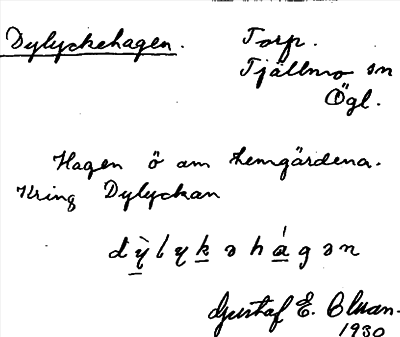 Dylyckehagen. Torp.
Tjällmo sn
Ögl.
Hagen ö om hemgårdena.
Kring Dylyckan
dỳ̠lyk̠əhá̠gən
Gustaf E.
1930